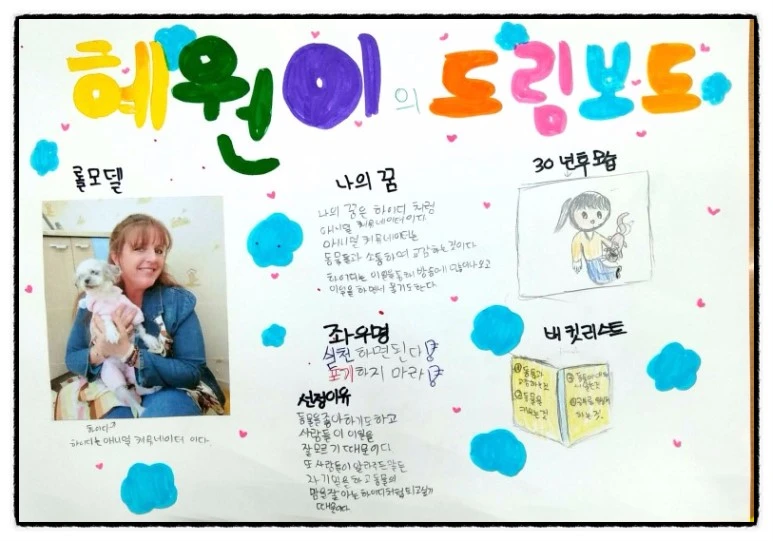 혜원이의 드림보드
롤모델
하이디는 애니멀 커뮤니케이터 이다.
나의 꿈
나의 꿈은 하이디 처럼
애니멀 커뮤니케이터이다.
애니멀 커뮤니케이터는
동물들과 소통하여 교감하는것이다
하이디는 이런동물 방송에 많이나오고
이일을 하면서 울기도한다.
30년후모습
좌우명
실천하면된다
포기하지 마라
선정이유
동물을좋아하기도하고
사람들이 이일을
잘모르기 때문이다.
또 사람들이 알려주듯
자기일은하고동물의
맘을잘아는하이디처럼되고싶기
때문이다.
버킷리스트
동물과
교감하는것
동물을
키우는것
하는것.